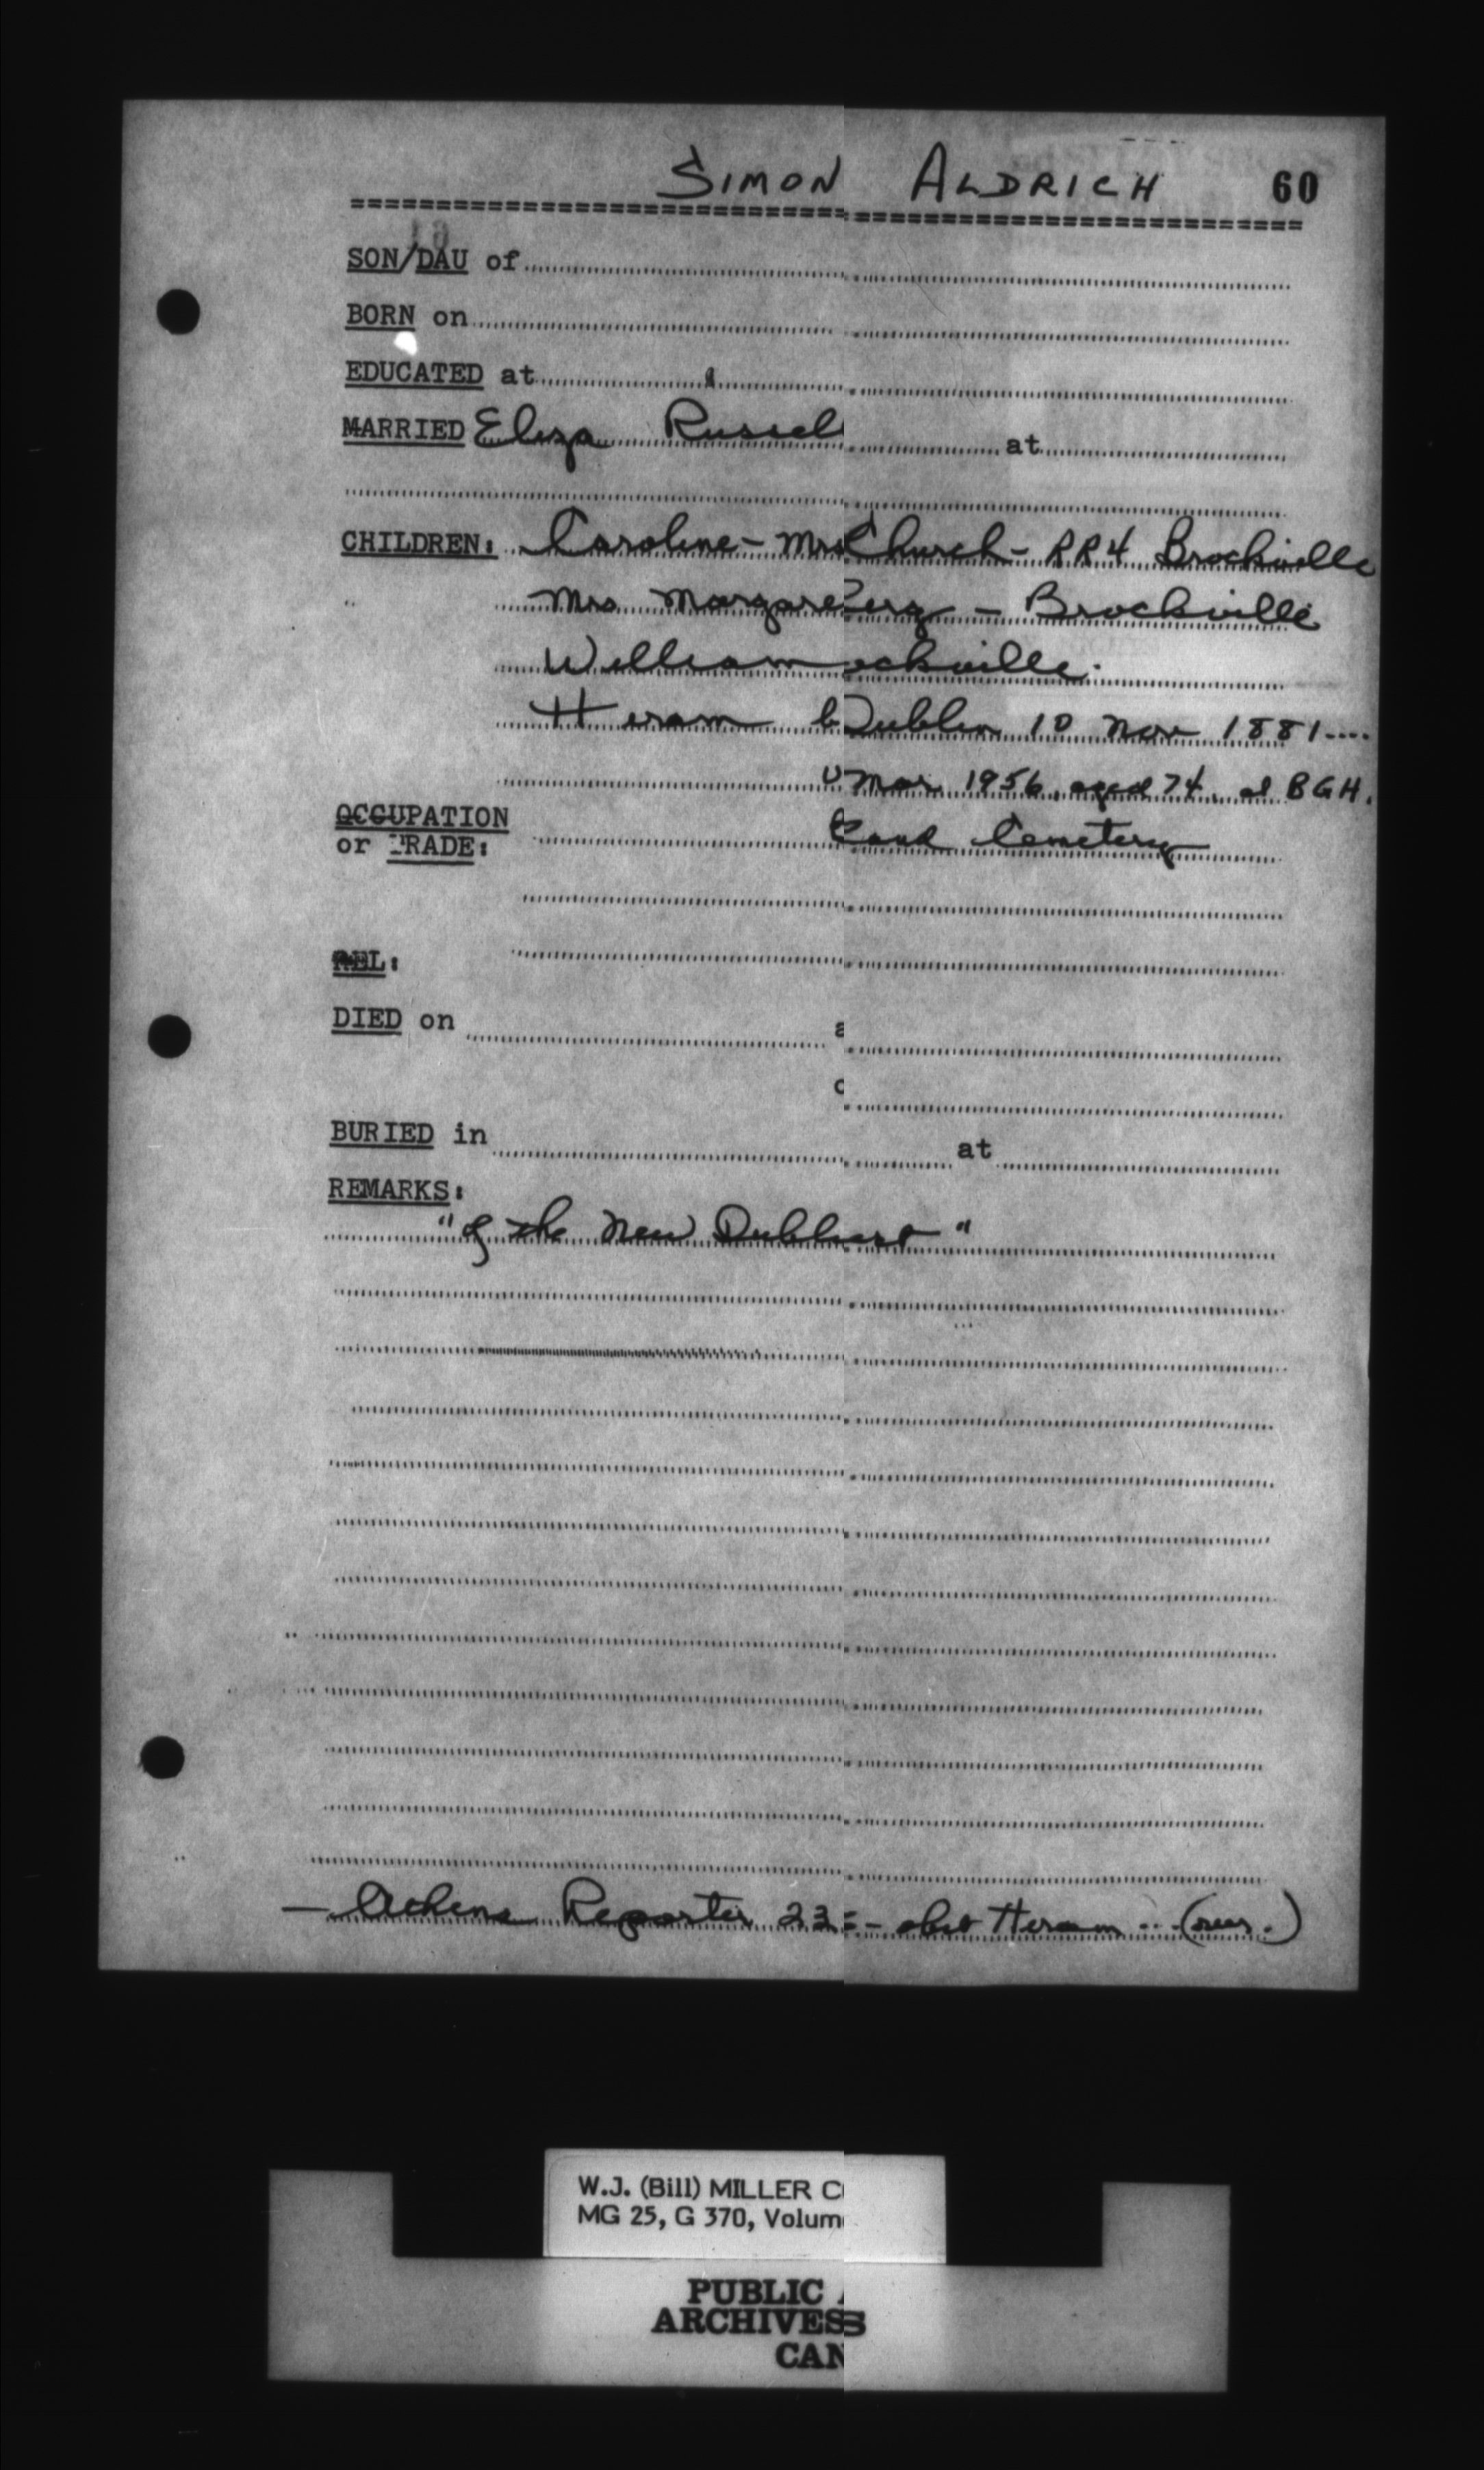 SIMON ALDRICH 60
SON/DAU of
BORN on
EDUCATED at
MARRIED Eliza Russel at
CHILDREN: Caroline - Mrs Church - RR4 Brockville
Mrs Margare erg - Brockville
William ockville.
Hiram b Dublin 10 Nov 1881....
Mar 1956, aged 74, at BGH.
OCCUPATION
Cemetery
or TRADE:
REL:
DIED on a
c
BURIED in at
REMARKS:
" of the New Dublin "
- Athens Reporter 23 - obit Hiram ...
W.J. (Bill) MILLER C
MG 25, G 370, Volum
PUBLIC A
ARCHIVESS
CAN